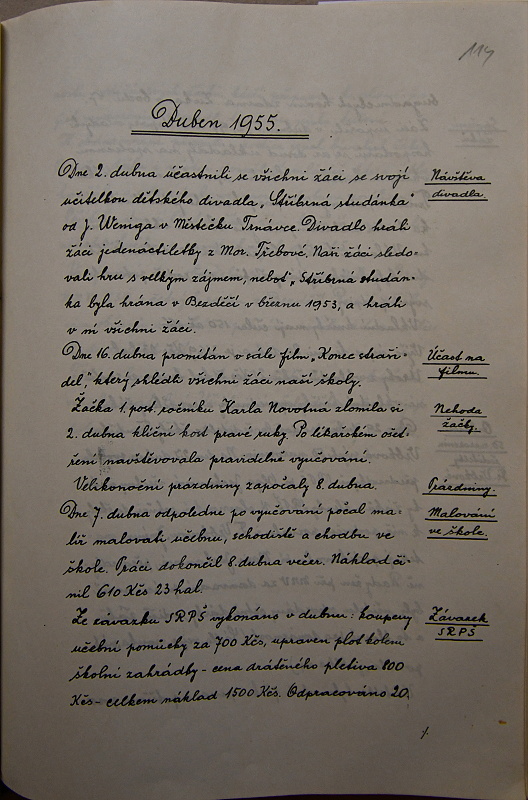 114
Duben 1955.
Dne 2. dubna účastnili se všichni žáci se svojí
Návštěva
učitelkou dětského divadla „Stříbrná studánka"
divadla.
od J. Weniga v Městečku Trnávce. Divadlo hráli
žáci jedenáctiletky z Mor. Třebové. Naši žáci sledo-
vali hru s velkým zájmem, neboť „Stříbrná studán-
ka byla hrána v Bezděčí v březnu 1953, a hráli
v ní všichni žáci.
Dne 16. dubna promítán v sále film „Konec straši-
Účast na
del", který shlédli všichni žáci naší školy.
filmu.
Žačka 1. post. ročníku Karla Novotná zlomila si
Nehoda
2. dubna klíční kost pravé ruky. Po lékařském ošet-
žačky.
ření navštěvovala pravidelně vyučování.
Velikonoční prázdniny započaly 8. dubna.
Prázdniny.
Dne 7. dubna odpoledne po vyučování počal ma-
Malování
líř malovati učebnu, schodiště a chodbu ve
ve škole.
škole. Práci dokončil 8. dubna večer. Náklad či-
nil 610 Kčs 23 hal.
Ze závazku SRPŠ vykonáno v dubnu: koupeny
Závazek
SRPŠ
učební pomůcky za 700 Kčs, upraven plot kolem
školní zahrádky - cena drátěného pletiva 800
Kčs - celkem náklad 1500 Kčs. Odpracováno 20